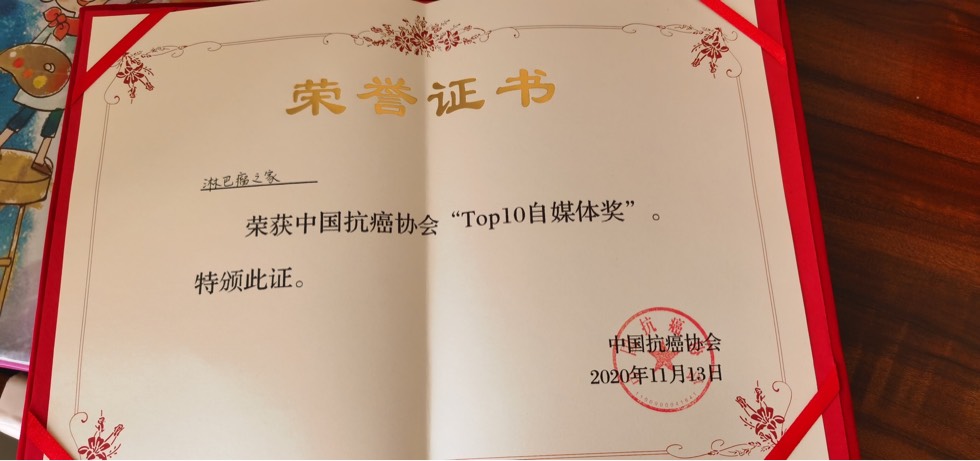 荣誉证书
淋巴瘤之家
荣获中国抗癌协会“Top10自媒体奖”。
特颁此证。
中国抗癌协会
2020年11月13日